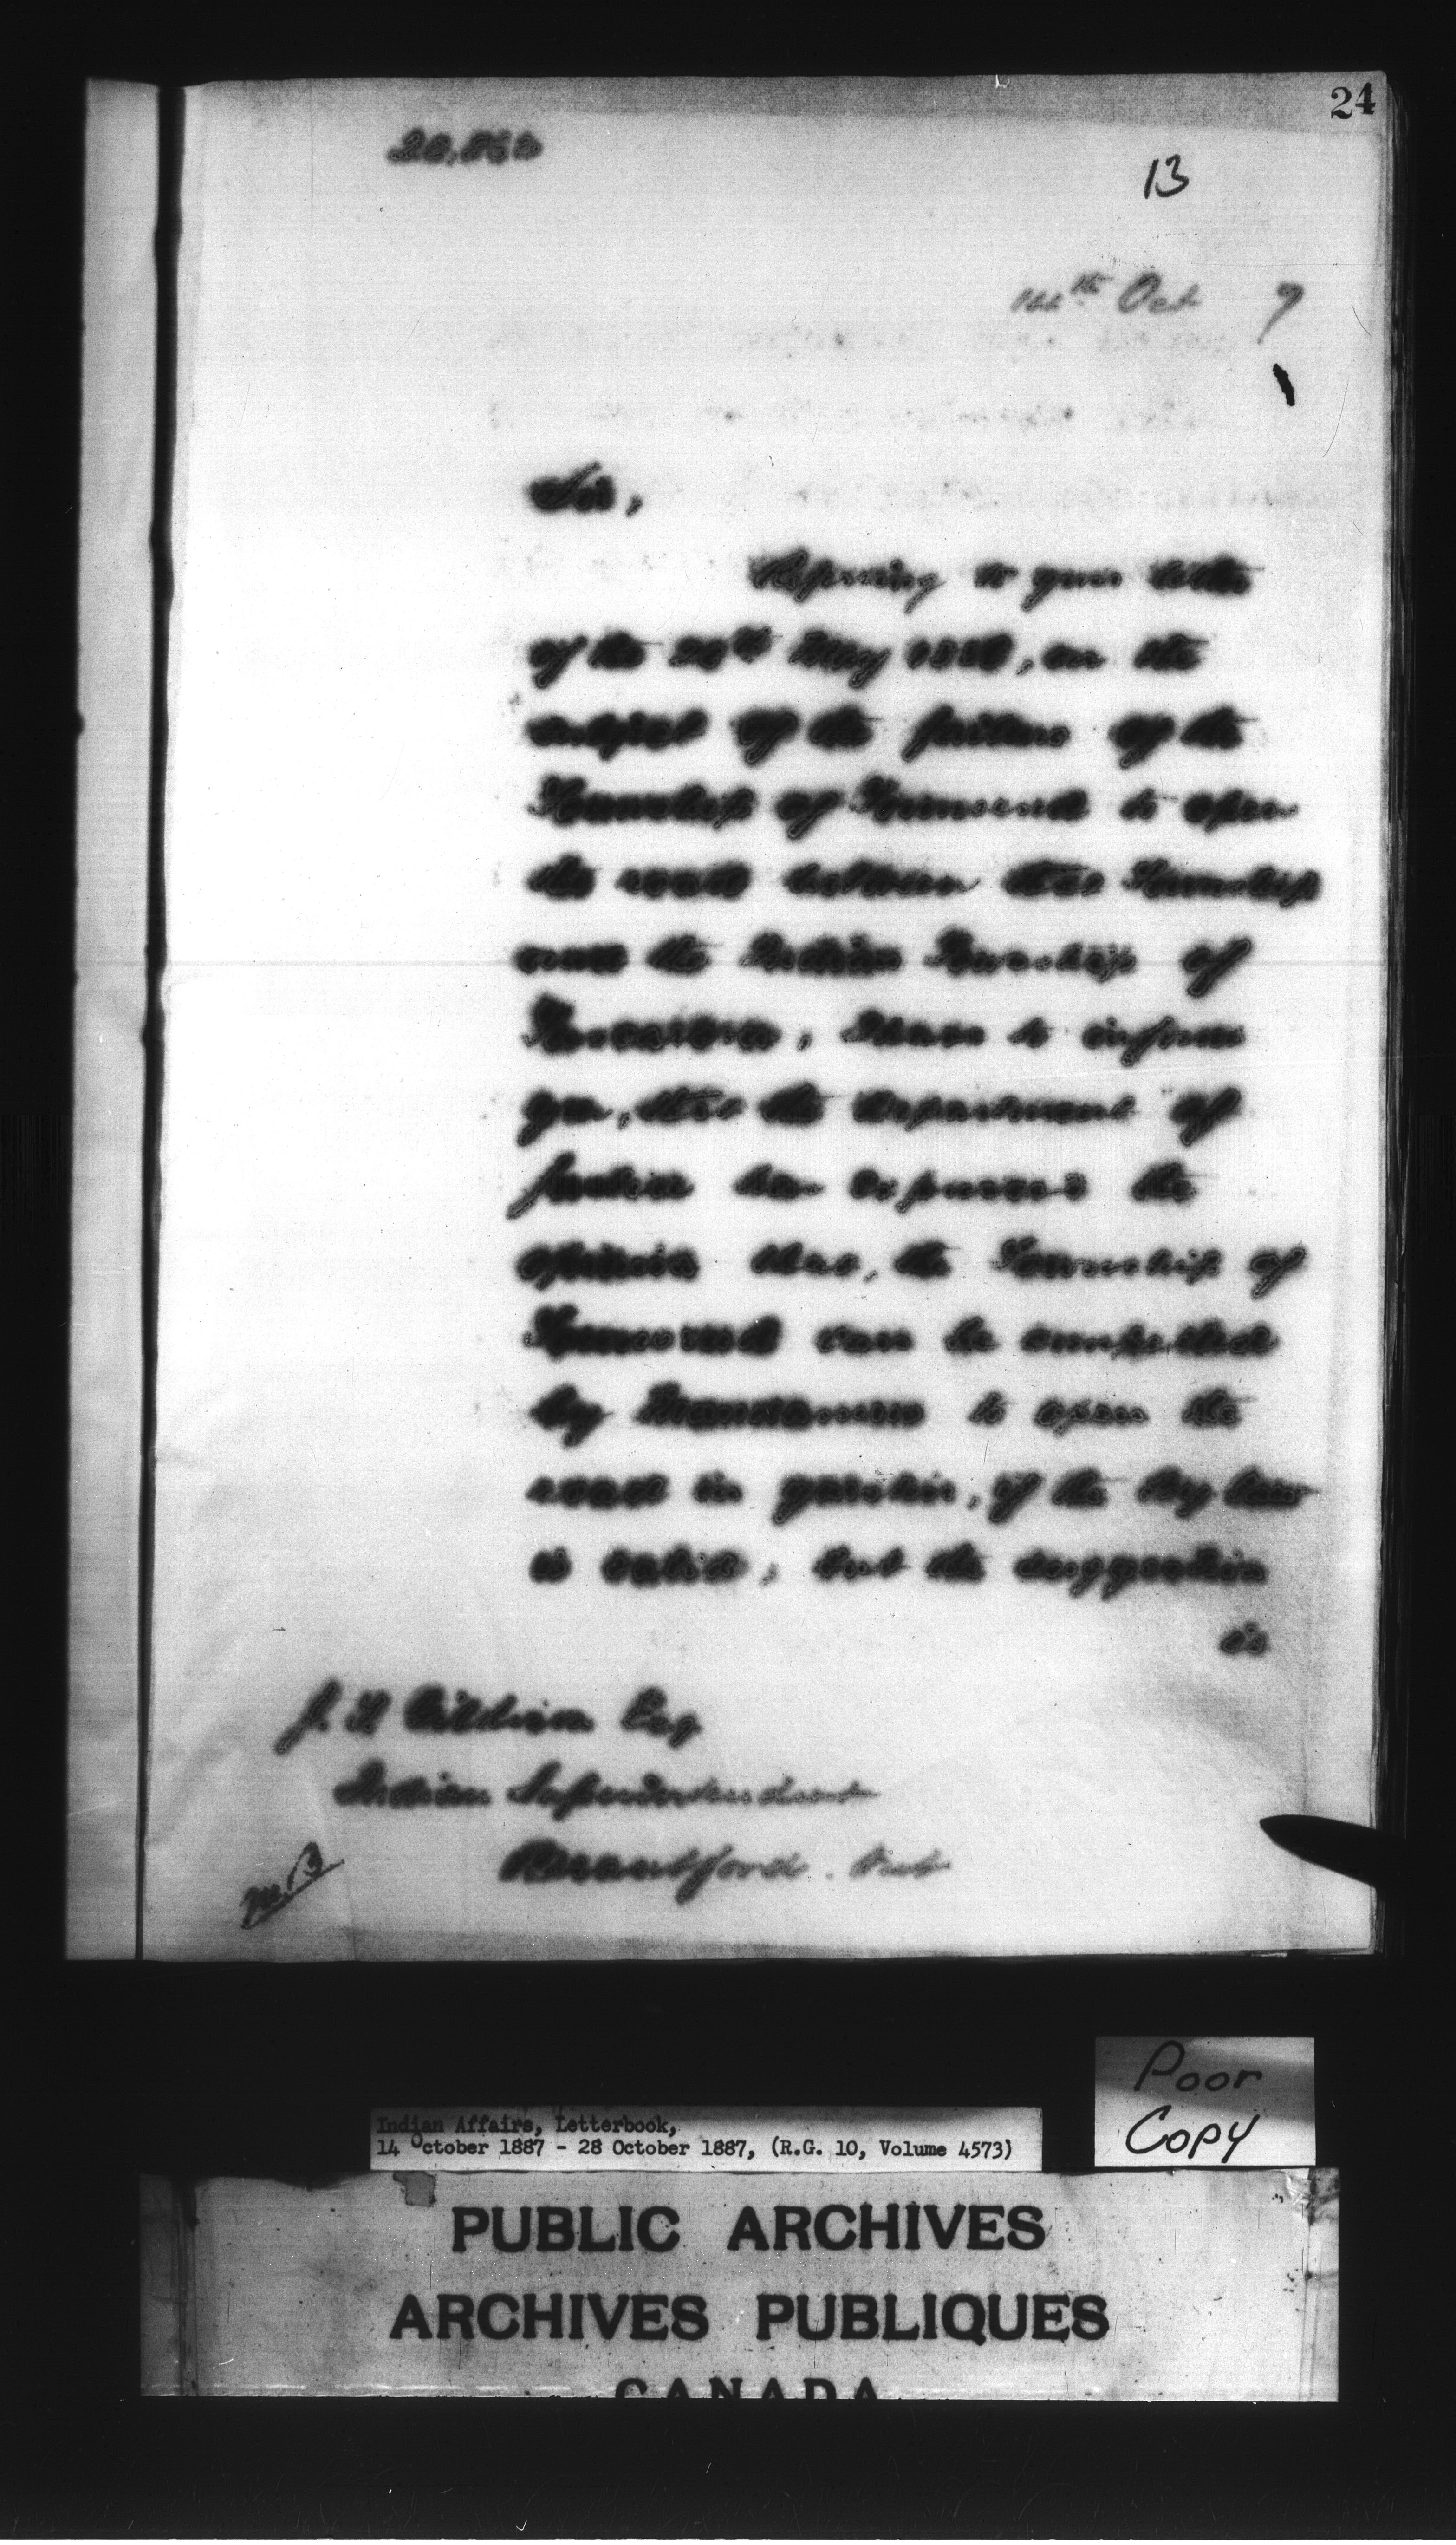 24
13
14th Oct 7
Sir,
Referring to your letter
of the May, on the
subject of the failure of the
Township of Townsend to open
the road between that Township
and the Indian Township of
Tuscarora, I have to inform
you, that the Department of
Justice has expressed the
opinion that, the Township of
Townsend can be compelled
by Mandamus to open the
road in question, if the By law
is valid; but the suggestion
is
J. T. Gilkison Esq
Indian Superintendent
Brantford. Ont
Poor
Copy
Indian Affairs, Letterbook,
14 October 1887 - 28 October 1887, (R.G. 10, Volume 4573)
PUBLIC ARCHIVES
ARCHIVES PUBLIQUES
CANADA